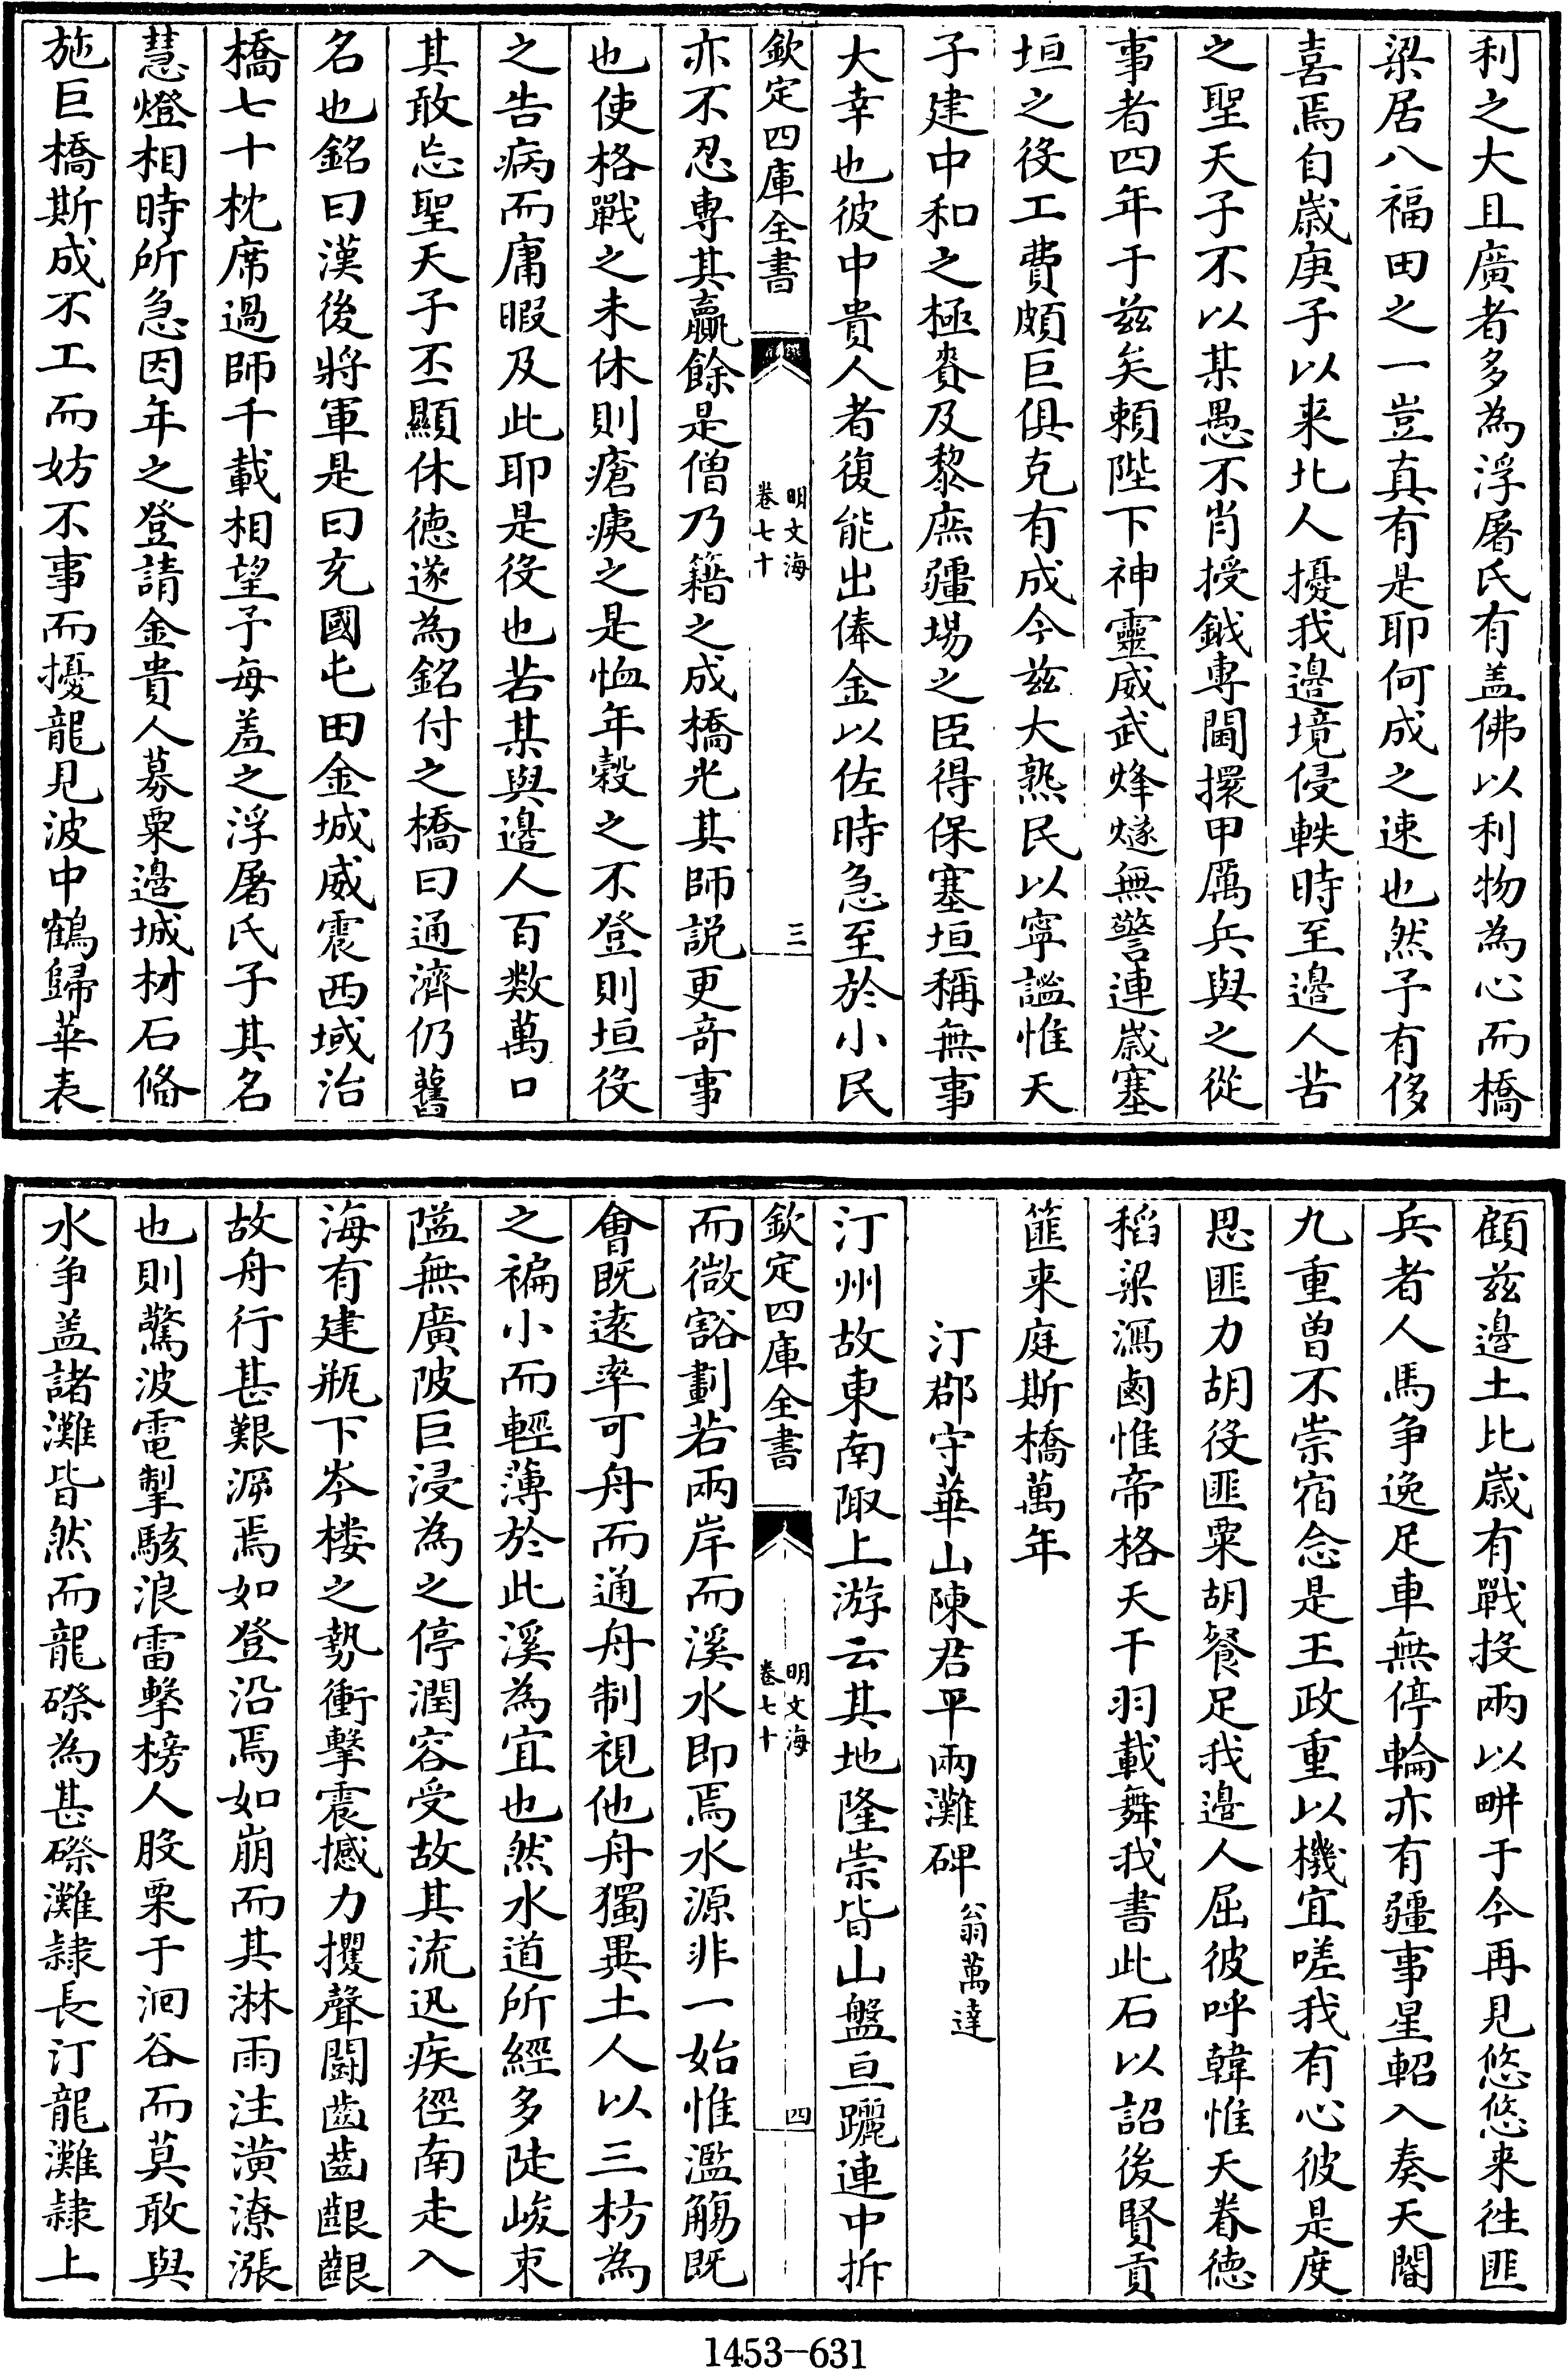 利之大且廣者多為浮屠氏有盖佛以利物為心而橋
梁居八福田之一豈真有是耶何成之速也然予有侈
喜焉自嵗庚子以来北人擾我邉境侵軼時至邉人苦
之聖天子不以某愚不肖授鉞專閫擐甲厲兵與之從
事者四年于兹矣頼陛下神靈威武烽燧無警連嵗塞
垣之役工費頗巨俱克有成今兹大熟民以寧謐惟天
子建中和之極賚及黎庶疆埸之臣得保塞垣稱無事
大幸也彼中貴人者復能出俸金以佐時急至於小民
欽定四庫全書
明文海
卷七十
三
亦不忍專其贏餘是僧乃籍之成橋光其師説更竒事
也使格戰之未休則瘡痍之是恤年榖之不登則垣役
之告病而庸暇及此耶是役也若某與邉人百數萬口
其敢忘聖天子丕顯休德遂為銘付之橋曰通濟仍舊
名也銘曰漢後將軍是曰充國屯田金城威震西域治
橋七十枕席過師千載相望予每羞之浮屠氏子其名
慧燈相時所急因年之登請金貴人募粟邉城材石脩
施巨橋斯成不工而妨不事而擾龍見波中鶴歸華表
顧兹邉土比嵗有戰投兩以畊于今再見悠悠来徃匪
兵者人馬争逸足車無停輪亦有疆事星軺入奏天閽
九重曽不崇宿念是王政重以機宜嗟我有心彼是度
思匪力胡役匪粟胡餐足我邉人屈彼呼韓惟天眷德
稻粱潟鹵惟帝格天干羽載舞我書此石以詔後賢貢
篚来庭斯橋萬年
汀郡守華山陳君平兩灘碑翁萬達
汀州故東南陬上游云其地隆崇皆山盤亘躧連中拆
欽定四庫全書
明文海
卷七十
四
而微豁劃若兩岸而溪水即焉水源非一始惟濫觴既
會既逺率可舟而通舟制視他舟獨異土人以三枋為
之褊小而輕薄於此溪為宜也然水道所經多陡峻朿
隘無廣陂巨浸為之停潤容受故其流迅疾徑南走入
海有建瓶下岑楼之勢衝擊震撼力攫聲鬭齒齒齦齦
故舟行甚艱泝焉如登沿焉如崩而其淋雨注潢潦漲
也則驚波電掣駭浪雷擊榜人股栗于洄谷而莫敢與
水争盖諸灘皆然而龍磜為甚磜灘隷長汀龍灘隷上
1453-631